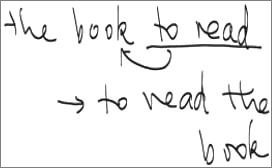 the book to read
→ to read the
book